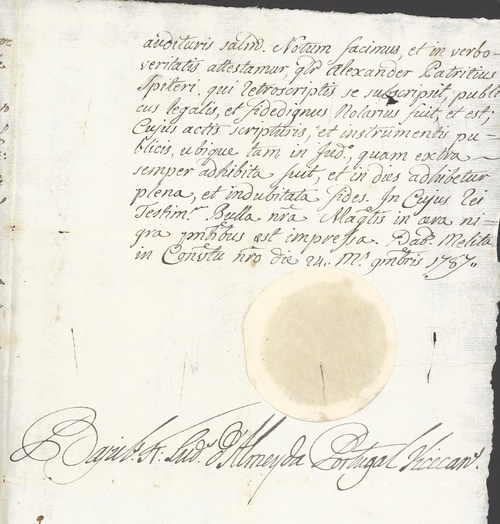 audituris salm. Notum facimus, et in verbo
veritatis attestamur, qlr Alexander Patritius
Spiteri, qui retroscriptis se subscripsit, publi
cus legalis, et fidedignus Notarius fuit, et est;
Cujus actis scripturis, et instrumentis pu=
blicis, ubique tam in Jud.o, quam extra
semper adhibita fuit, et in dies adhibetur
plena, et indubitata fides. In Cujus rei
Testim.m Bulla nra Magtis in cera ni=
gra pntibus est impressa. Dat. Melitæ
in Conv.tu nro die 24. M.s 9mbris 1787..
Bajul.s Fr. Lud.s d'Almeyda Portugal Vicecan.s